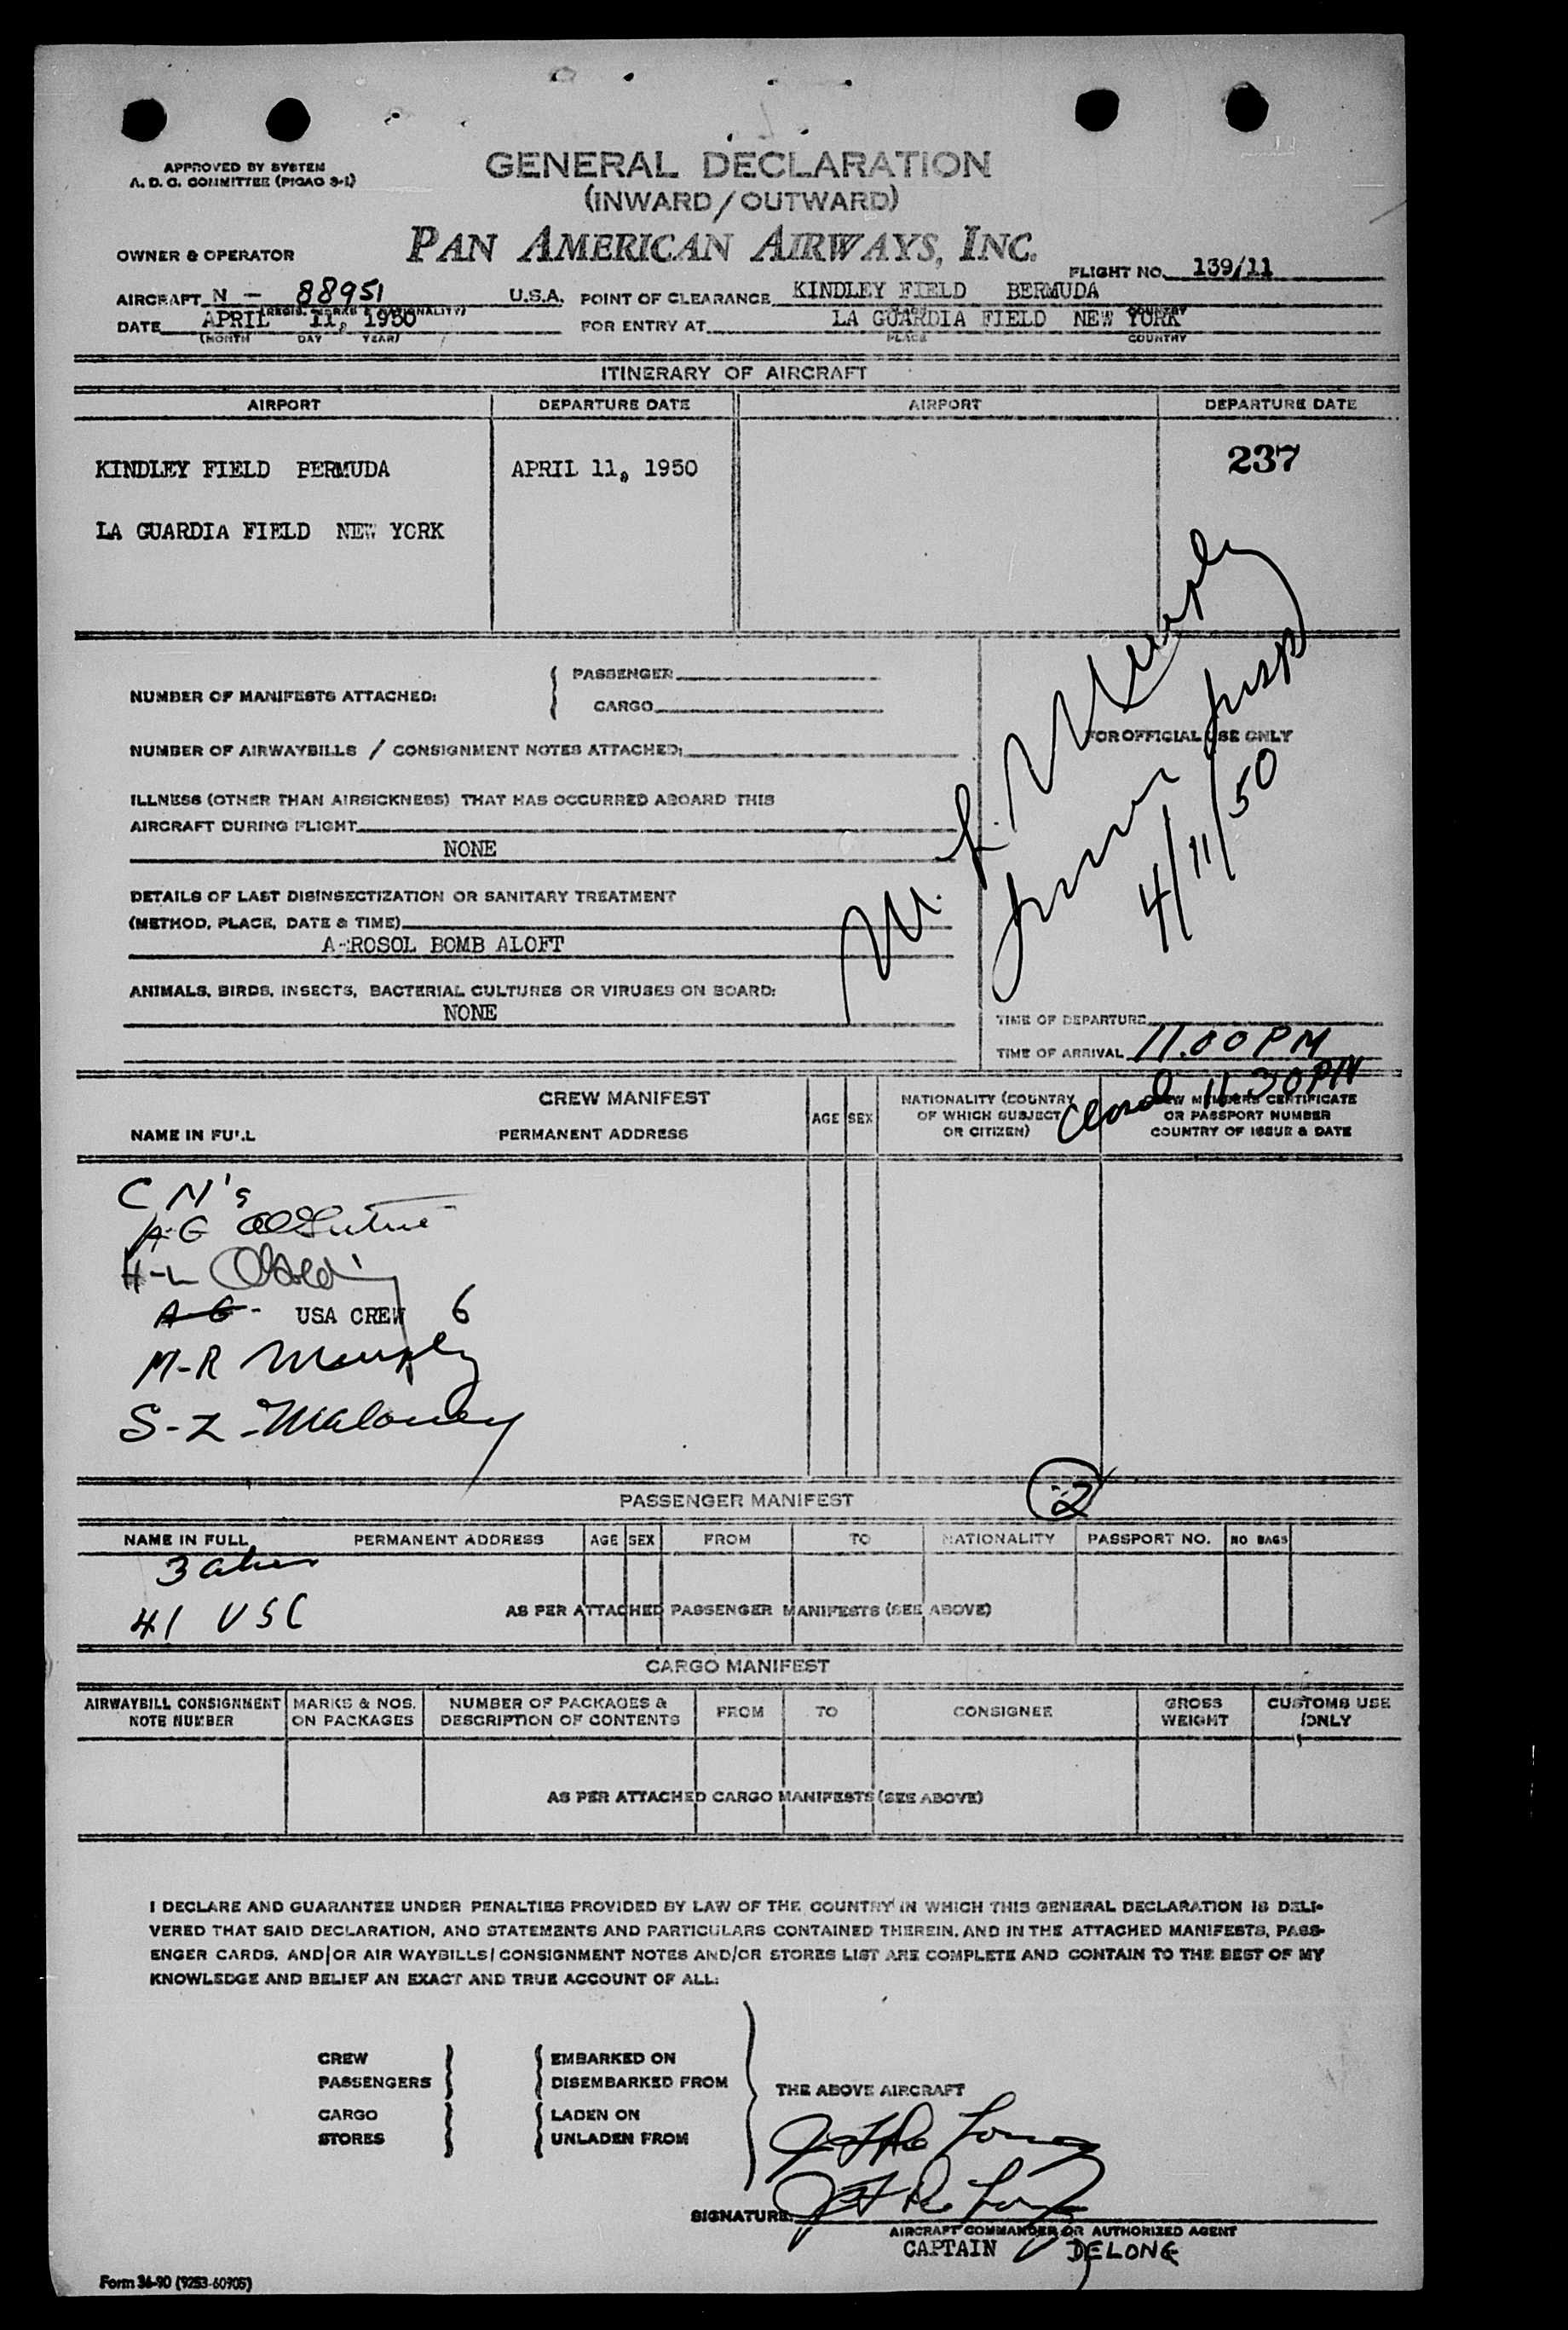 APPROVED BY SYSTEM
A. D. C. COMMITTEE (PICAO 9-1)
GENERAL DECLARATION
(INWARD / OUTWARD)
OWNER & OPERATOR
PAN AMERICAN AIRWAYS, INC.
FLIGHT NO. 139/11
AIRCRAFT N - 88951 U.S.A.
POINT OF CLEARANCE KINDLEY FIELD BERMUDA
DATE APRIL 11, 1950
(MONTH DAY YEAR)
FOR ENTRY AT LA GUARDIA FIELD NEW YORK
PLACE COUNTRY
ITINERARY OF AIRCRAFT
AIRPORT DEPARTURE DATE AIRPORT DEPARTURE DATE
237
KINDLEY FIELD BERMUDA APRIL 11, 1950
LA GUARDIA FIELD NEW YORK
NUMBER OF MANIFESTS ATTACHED:
PASSENGER
CARGO
NUMBER OF AIRWAYBILLS / CONSIGNMENT NOTES ATTACHED:
ILLNESS (OTHER THAN AIRSICKNESS) THAT HAS OCCURRED ABOARD THIS
AIRCRAFT DURING FLIGHT
NONE
DETAILS OF LAST DISINSECTIZATION OR SANITARY TREATMENT
(METHOD, PLACE, DATE & TIME)
A-ROSOL BOMB ALOFT
ANIMALS, BIRDS, INSECTS, BACTERIAL CULTURES OR VIRUSES ON BOARD:
NONE
FOR OFFICIAL USE ONLY
Murphy
Insp
4/11/50
TIME OF DEPARTURE
TIME OF ARRIVAL 11.00 PM
11.30 PM
CREW MANIFEST
NAME IN FULL PERMANENT ADDRESS
AGE SEX
NATIONALITY (COUNTRY
OF WHICH SUBJECT
OR CITIZEN)
CREW MEMBERS CERTIFICATE
OR PASSPORT NUMBER
COUNTRY OF ISSUE & DATE
C N's
A-G
H-L
A-G- USA CREW 6
M-R Murphy
S-Z - Maloney
2
PASSENGER MANIFEST
NAME IN FULL PERMANENT ADDRESS AGE SEX FROM TO NATIONALITY PASSPORT NO. NO BAGS
3 alien
41 USC
AS PER ATTACHED PASSENGER MANIFESTS (SEE ABOVE)
CARGO MANIFEST
AIRWAYBILL CONSIGNMENT
NOTE NUMBER
MARKS & NOS.
ON PACKAGES
NUMBER OF PACKAGES &
DESCRIPTION OF CONTENTS
FROM TO CONSIGNEE
GROSS
WEIGHT
CUSTOMS USE
ONLY
AS PER ATTACHED CARGO MANIFESTS (SEE ABOVE)
I DECLARE AND GUARANTEE UNDER PENALTIES PROVIDED BY LAW OF THE COUNTRY IN WHICH THIS GENERAL DECLARATION IS DELI-
VERED THAT SAID DECLARATION, AND STATEMENTS AND PARTICULARS CONTAINED THEREIN, AND IN THE ATTACHED MANIFESTS, PASS-
ENGER CARDS, AND/OR AIR WAYBILLS/CONSIGNMENT NOTES AND/OR STORES LIST ARE COMPLETE AND CONTAIN TO THE BEST OF MY
KNOWLEDGE AND BELIEF AN EXACT AND TRUE ACCOUNT OF ALL:
CREW
PASSENGERS
CARGO
STORES
EMBARKED ON
DISEMBARKED FROM
LADEN ON
UNLADEN FROM
THE ABOVE AIRCRAFT
SIGNATURE:
AIRCRAFT COMMANDER OR AUTHORIZED AGENT
CAPTAIN DELONG
Form 36-90 (9253-60905)